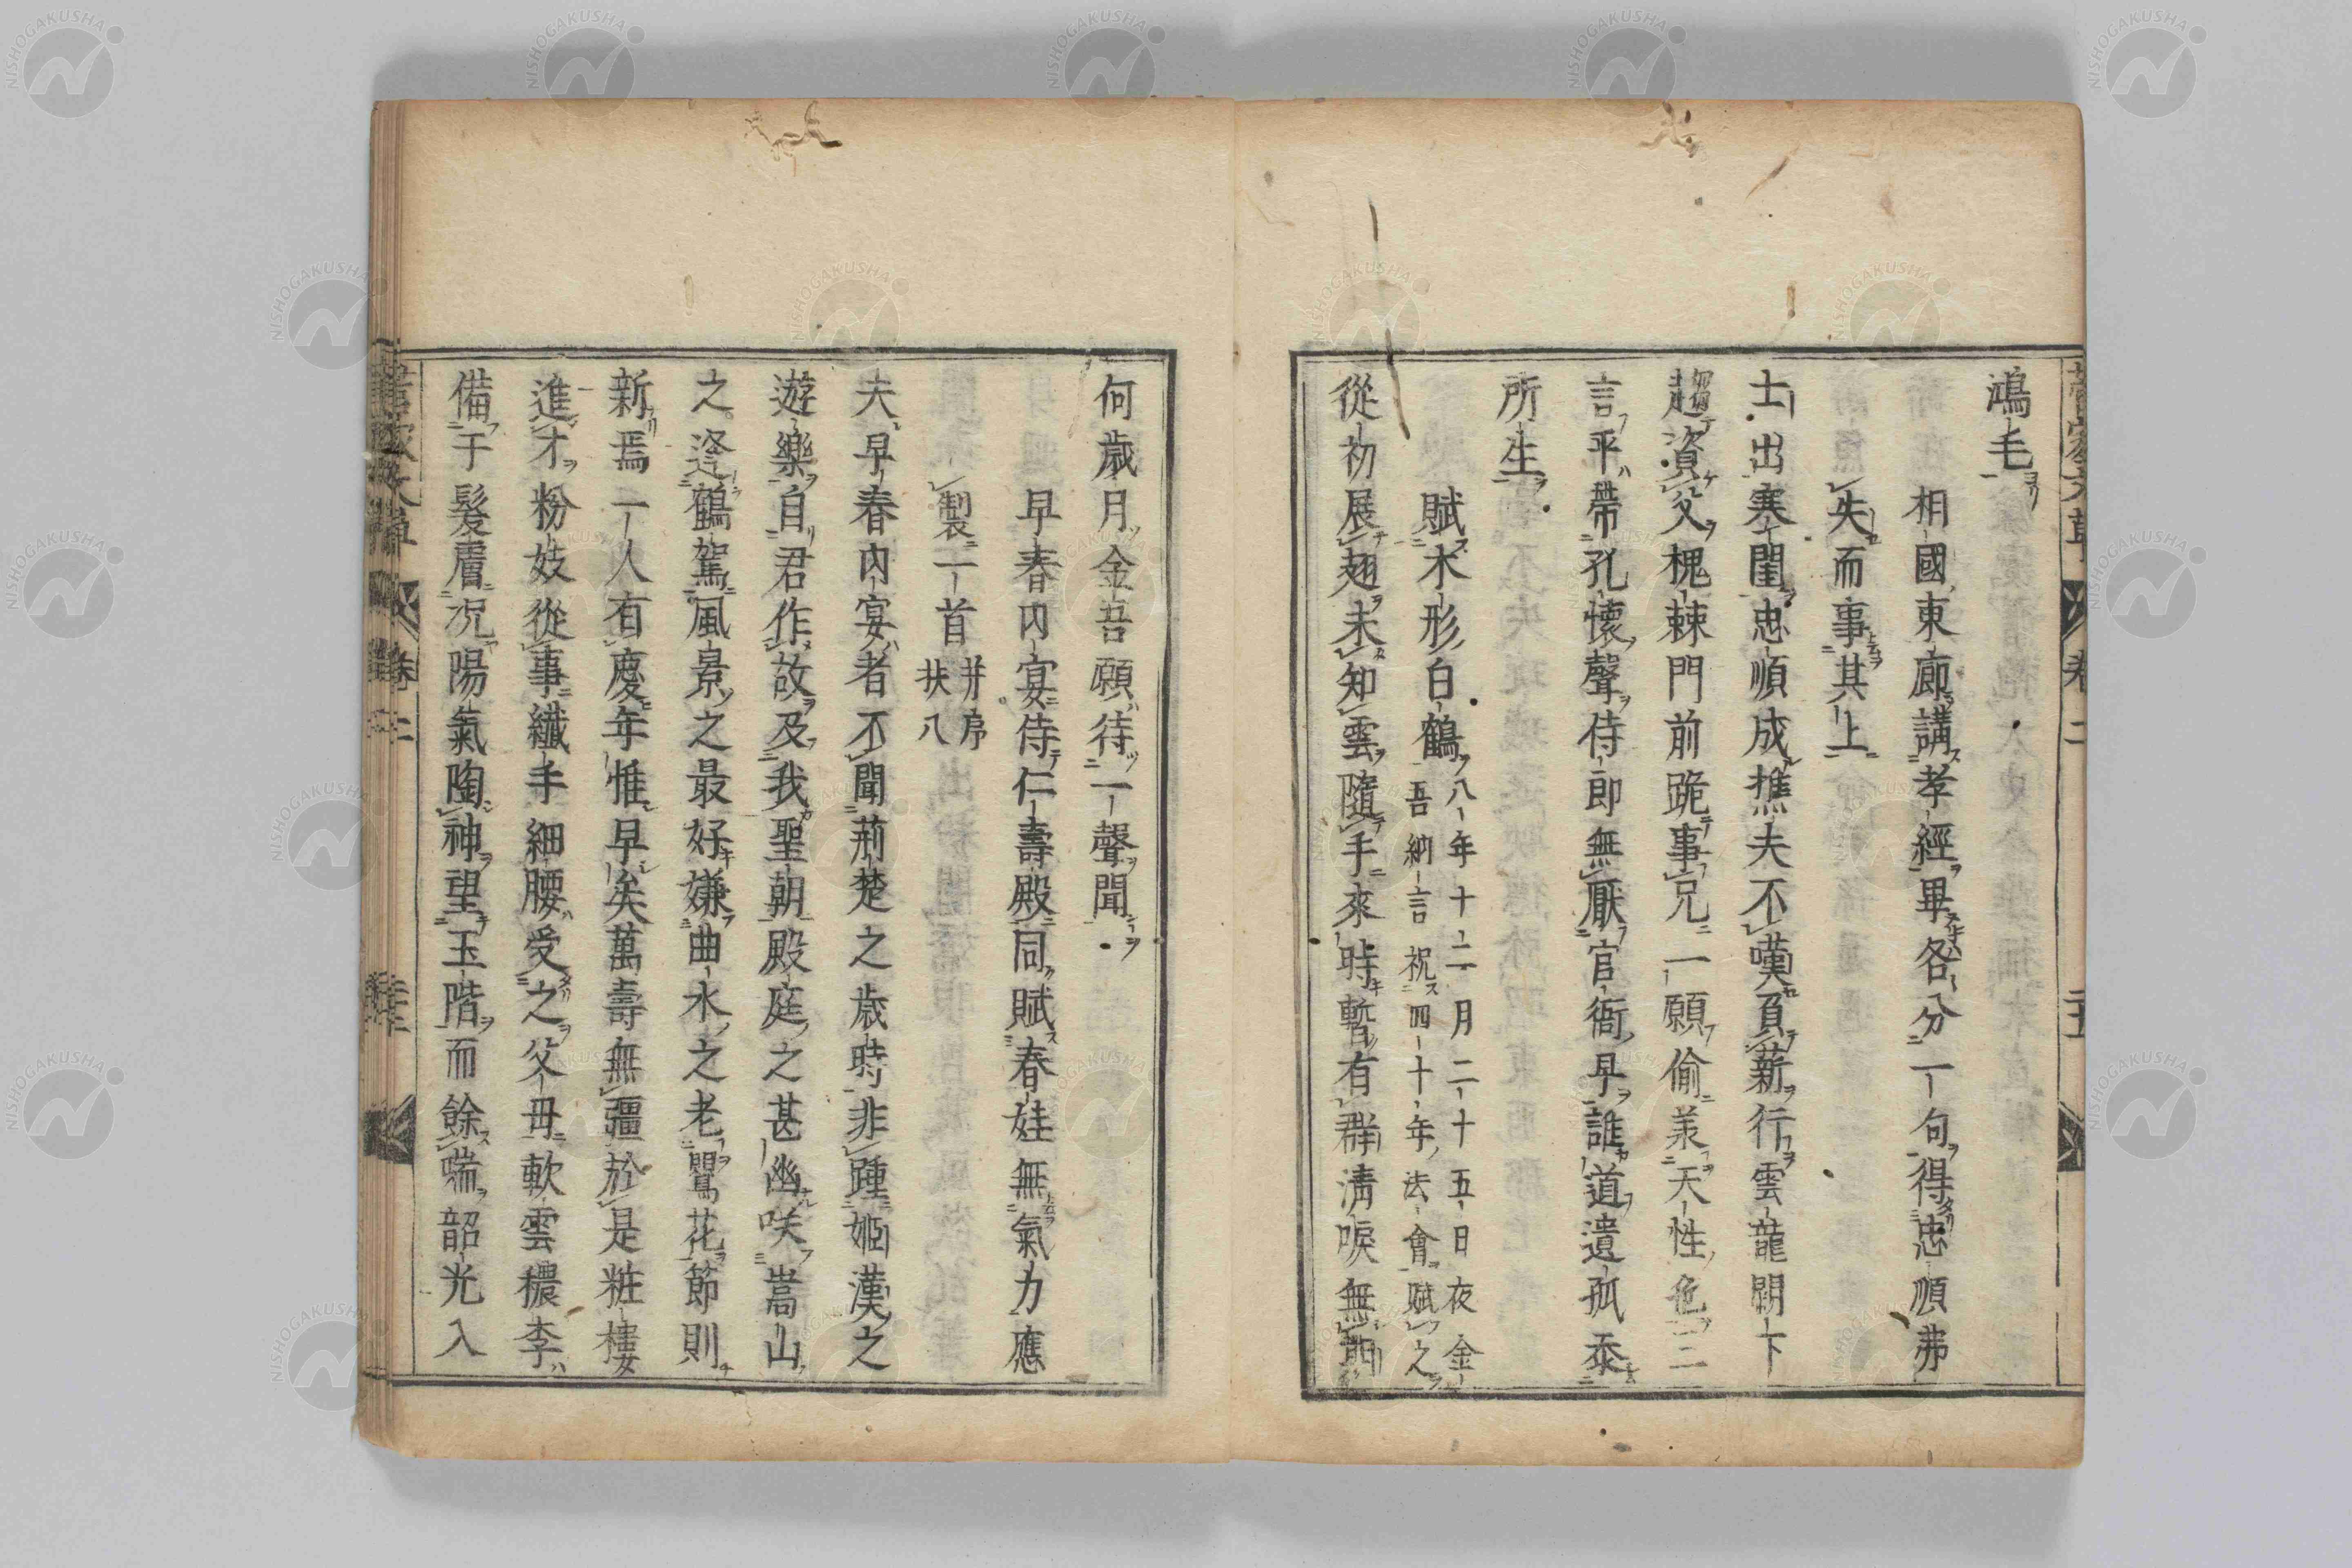 鴻毛
相國東廊講孝經畢各分一句得忠順弗
失而事其上
士出寒閨忠順成樵夫不嘆負薪行雲龍闕下
趨資父槐棘門前跪事兄一願偷羨天性色二
言乎帶孔懷聲侍郎無厭官衙早誰道遺孤忝
所生
賦木形白鶴
八年十二月二十五日夜金
吾納言祝四十年法會賦之
從初展翅未知雲隨手來時暫有群淸唳無
何歲月金吾願待一聲聞
早春內宴侍仁壽殿同賦春娃無氣力應
製一首
并序
扶八
夫早春內宴者不聞荊楚之歲時非踵姬漢之
遊樂自君作故及我聖朝殿庭之甚幽咲嵩山
之逢鶴駕風景之最好嫌曲水之老鸎花節則
新焉一人有慶年惟早矣萬壽無疆於是粧樓
進才粉妓從事纖手細腰受之父母軟雲穠李
備于髮膚況陽氣陶神望玉階而餘喘韶光入
菅家文草 卷二
NISHOGAKUSHA